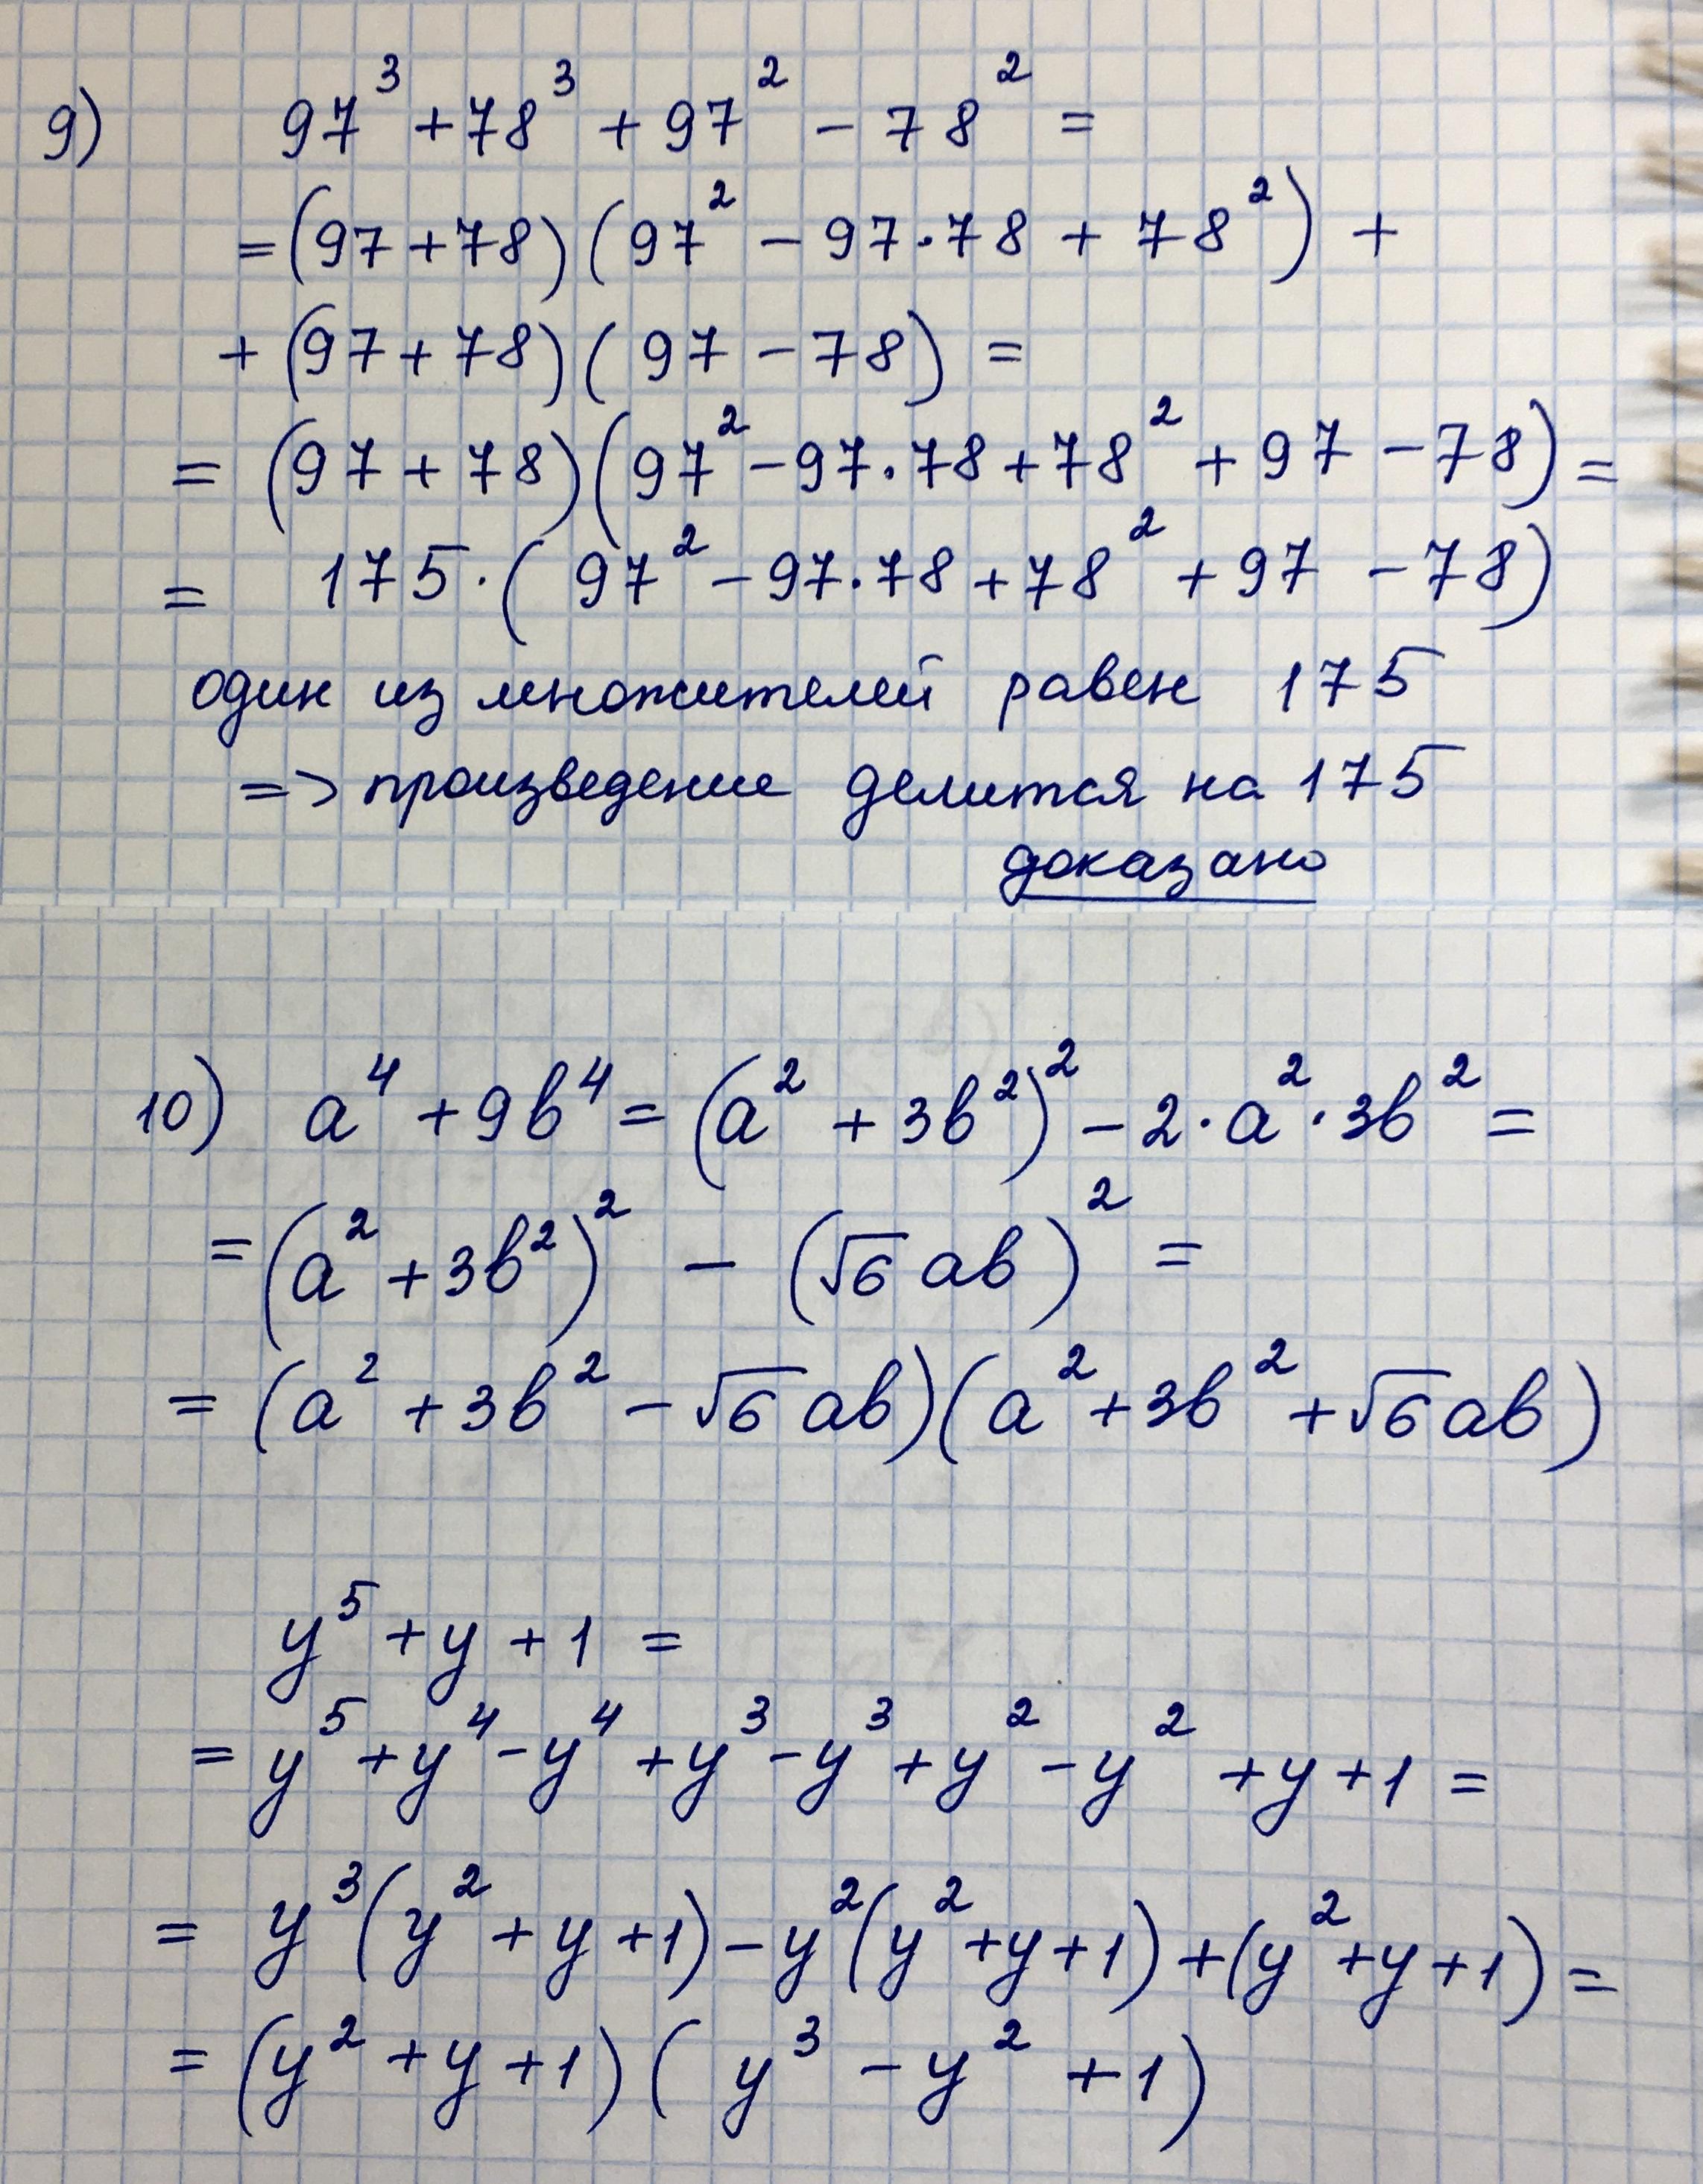 9) 97³ + 78³ + 97² - 78² =
= (97 + 78)(97² - 97·78 + 78²) +
+ (97 + 78)(97 - 78) =
= (97 + 78)(97² - 97·78 + 78² + 97 - 78) =
= 175·(97² - 97·78 + 78² + 97 - 78)
один из множителей равен 175
=> произведение делится на 175
доказано
10) a⁴ + 9b⁴ = (a² + 3b²)² - 2·a²·3b² =
= (a² + 3b²)² - (√6 ab)² =
= (a² + 3b² - √6 ab)(a² + 3b² + √6 ab)
y⁵ + y + 1 =
= y⁵ + y⁴ - y⁴ + y³ - y³ + y² - y² + y + 1 =
= y³(y² + y + 1) - y²(y² + y + 1) + (y² + y + 1) =
= (y² + y + 1)(y³ - y² + 1)